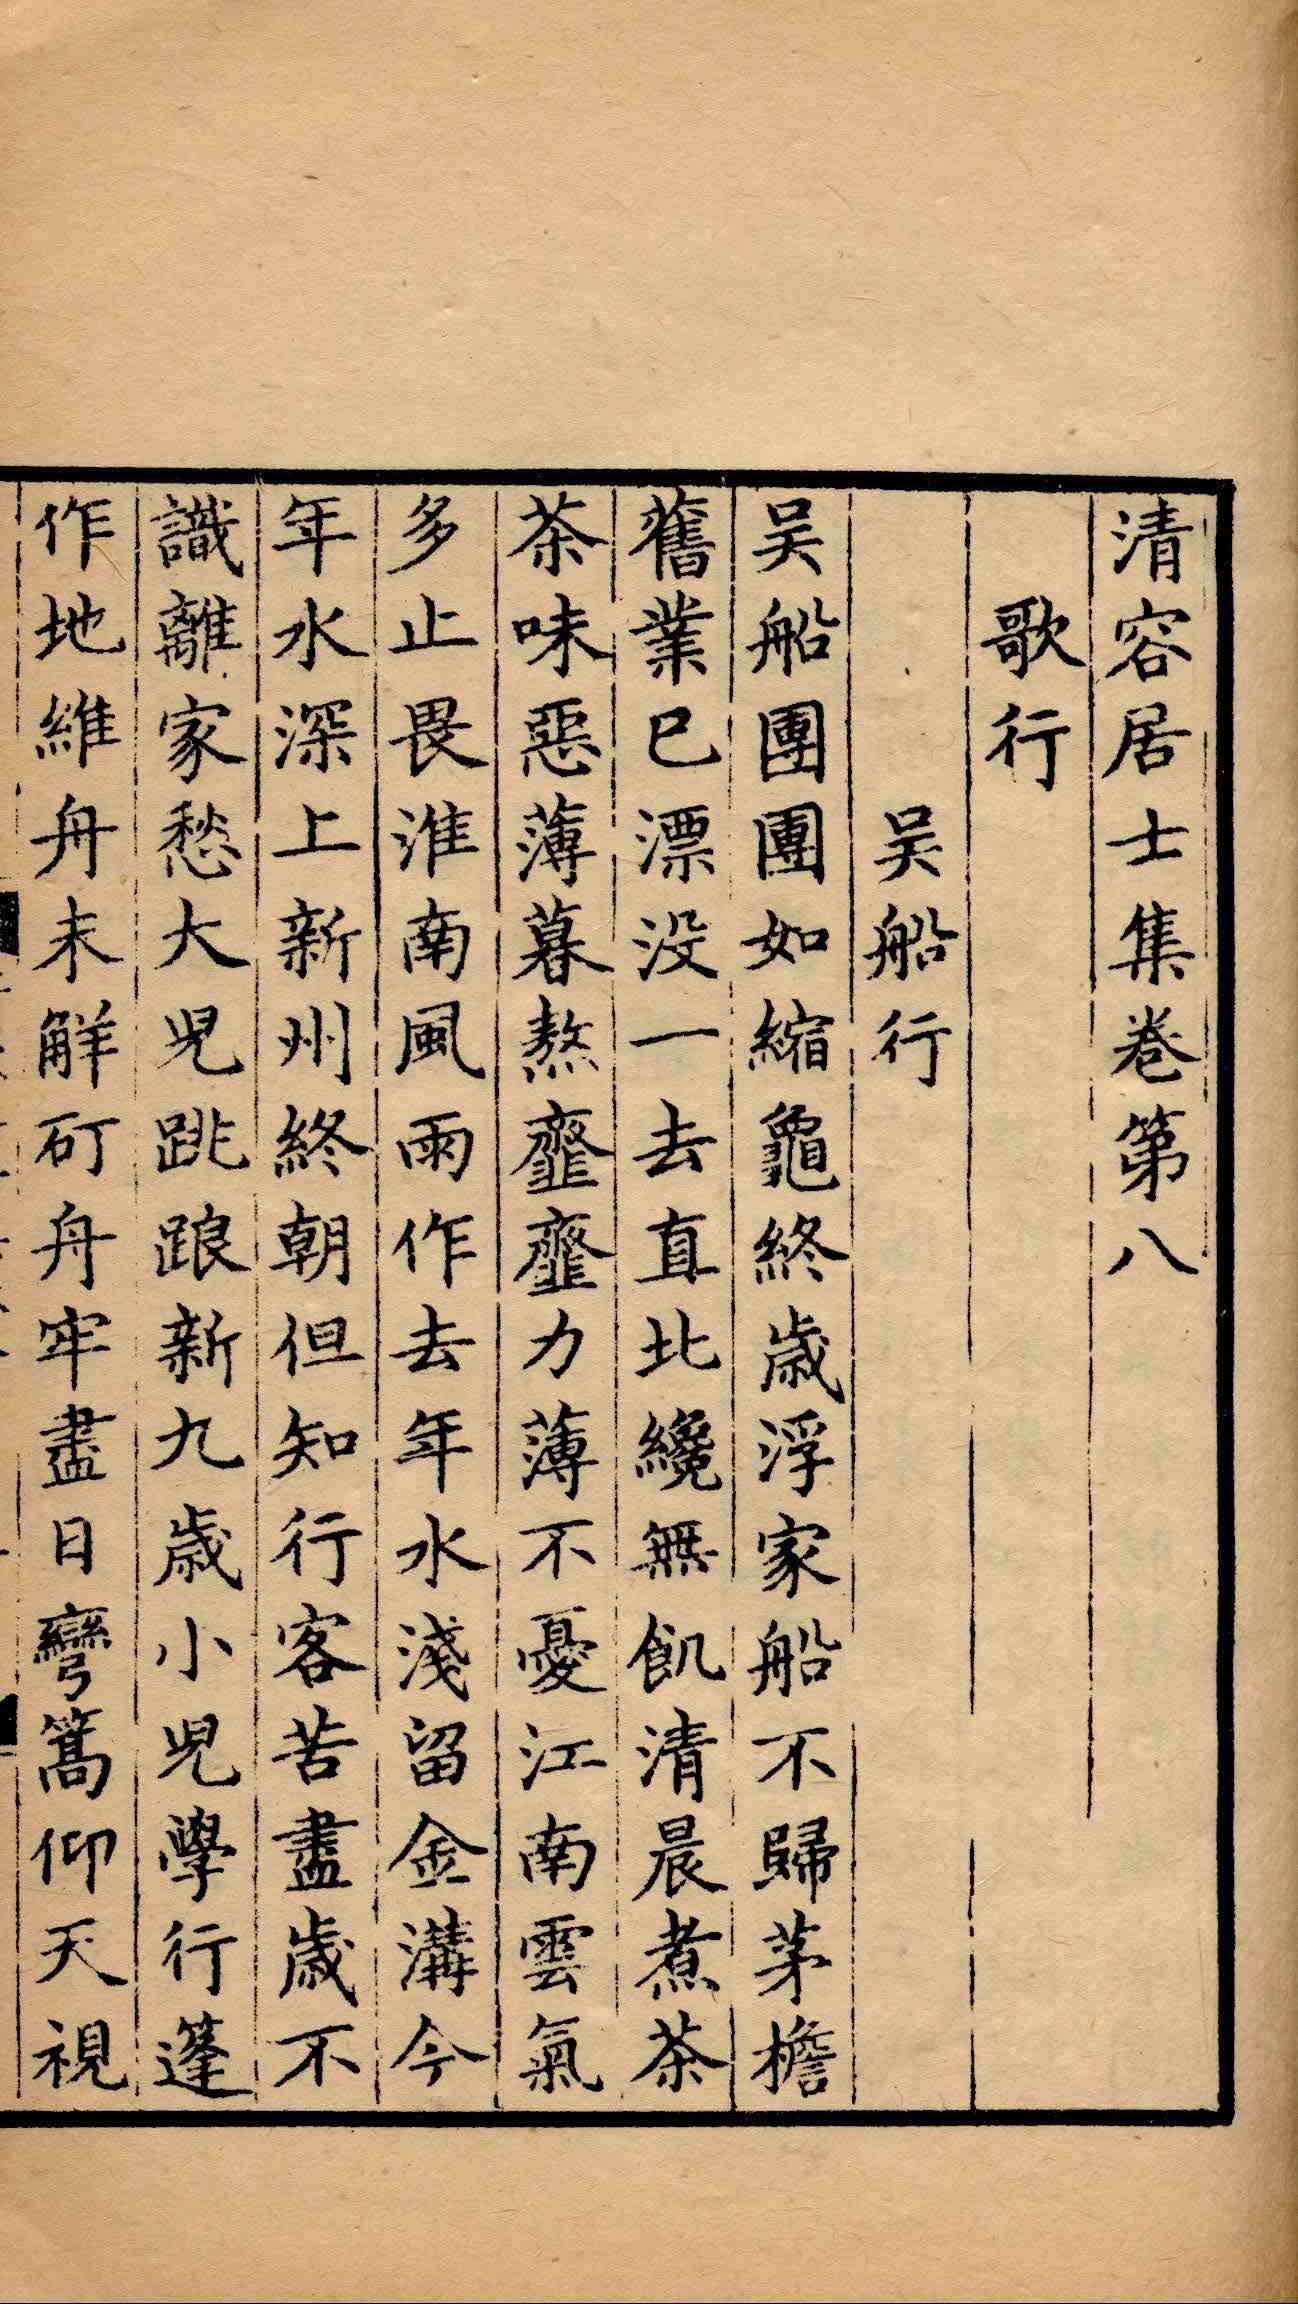 清容居士集卷第八
歌行
吴船行
吴船團團如縮龜終歲浮家船不歸茅檐
舊業已漂没一去直北纔無飢清晨煮茶
茶味惡薄暮熬虀虀力薄不憂江南雲氣
多止畏淮南風雨作去年水淺留金溝今
年水深上新州終朝但知行客苦盡歲不
識離家愁大兒跳踉新九歲小兒學行篷
作地維舟未觧矴舟牢盡日彎篙仰天視